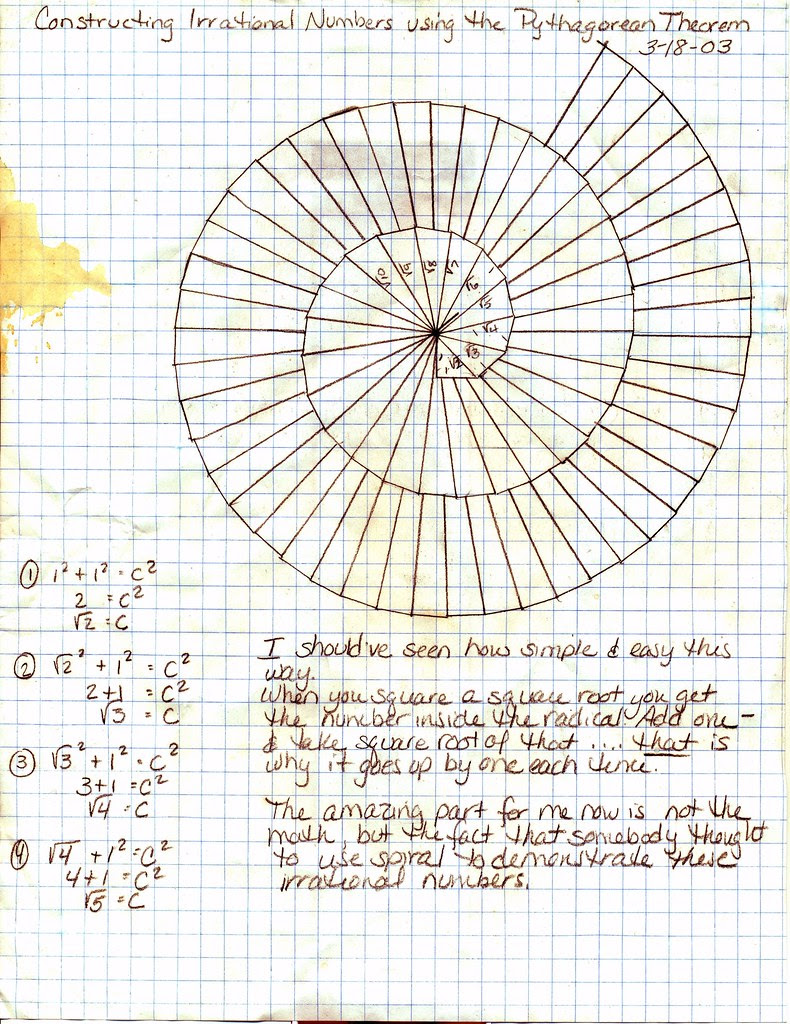 Constructing Irrational Numbers using the Pythagorean Theorem
3-18-03
√10
√9
√8
√7
√6
√5
√4
√3
√2
1
1
① 1² + 1² = C²
2 = C²
√2 = C
② √2² + 1² = C²
2+1 = C²
√3 = C
③ √3² + 1² = C²
3+1 = C²
√4 = C
④ √4 + 1² = C²
4+1 = C²
√5 = C
I should've seen how simple & easy this
way.
When you square a square root you get
the number inside the radical. Add one -
& take square root of that .... that is
why it goes up by one each time.
The amazing part for me now is not the
math, but the fact that somebody thought
to use spiral to demonstrate these
irrational numbers.